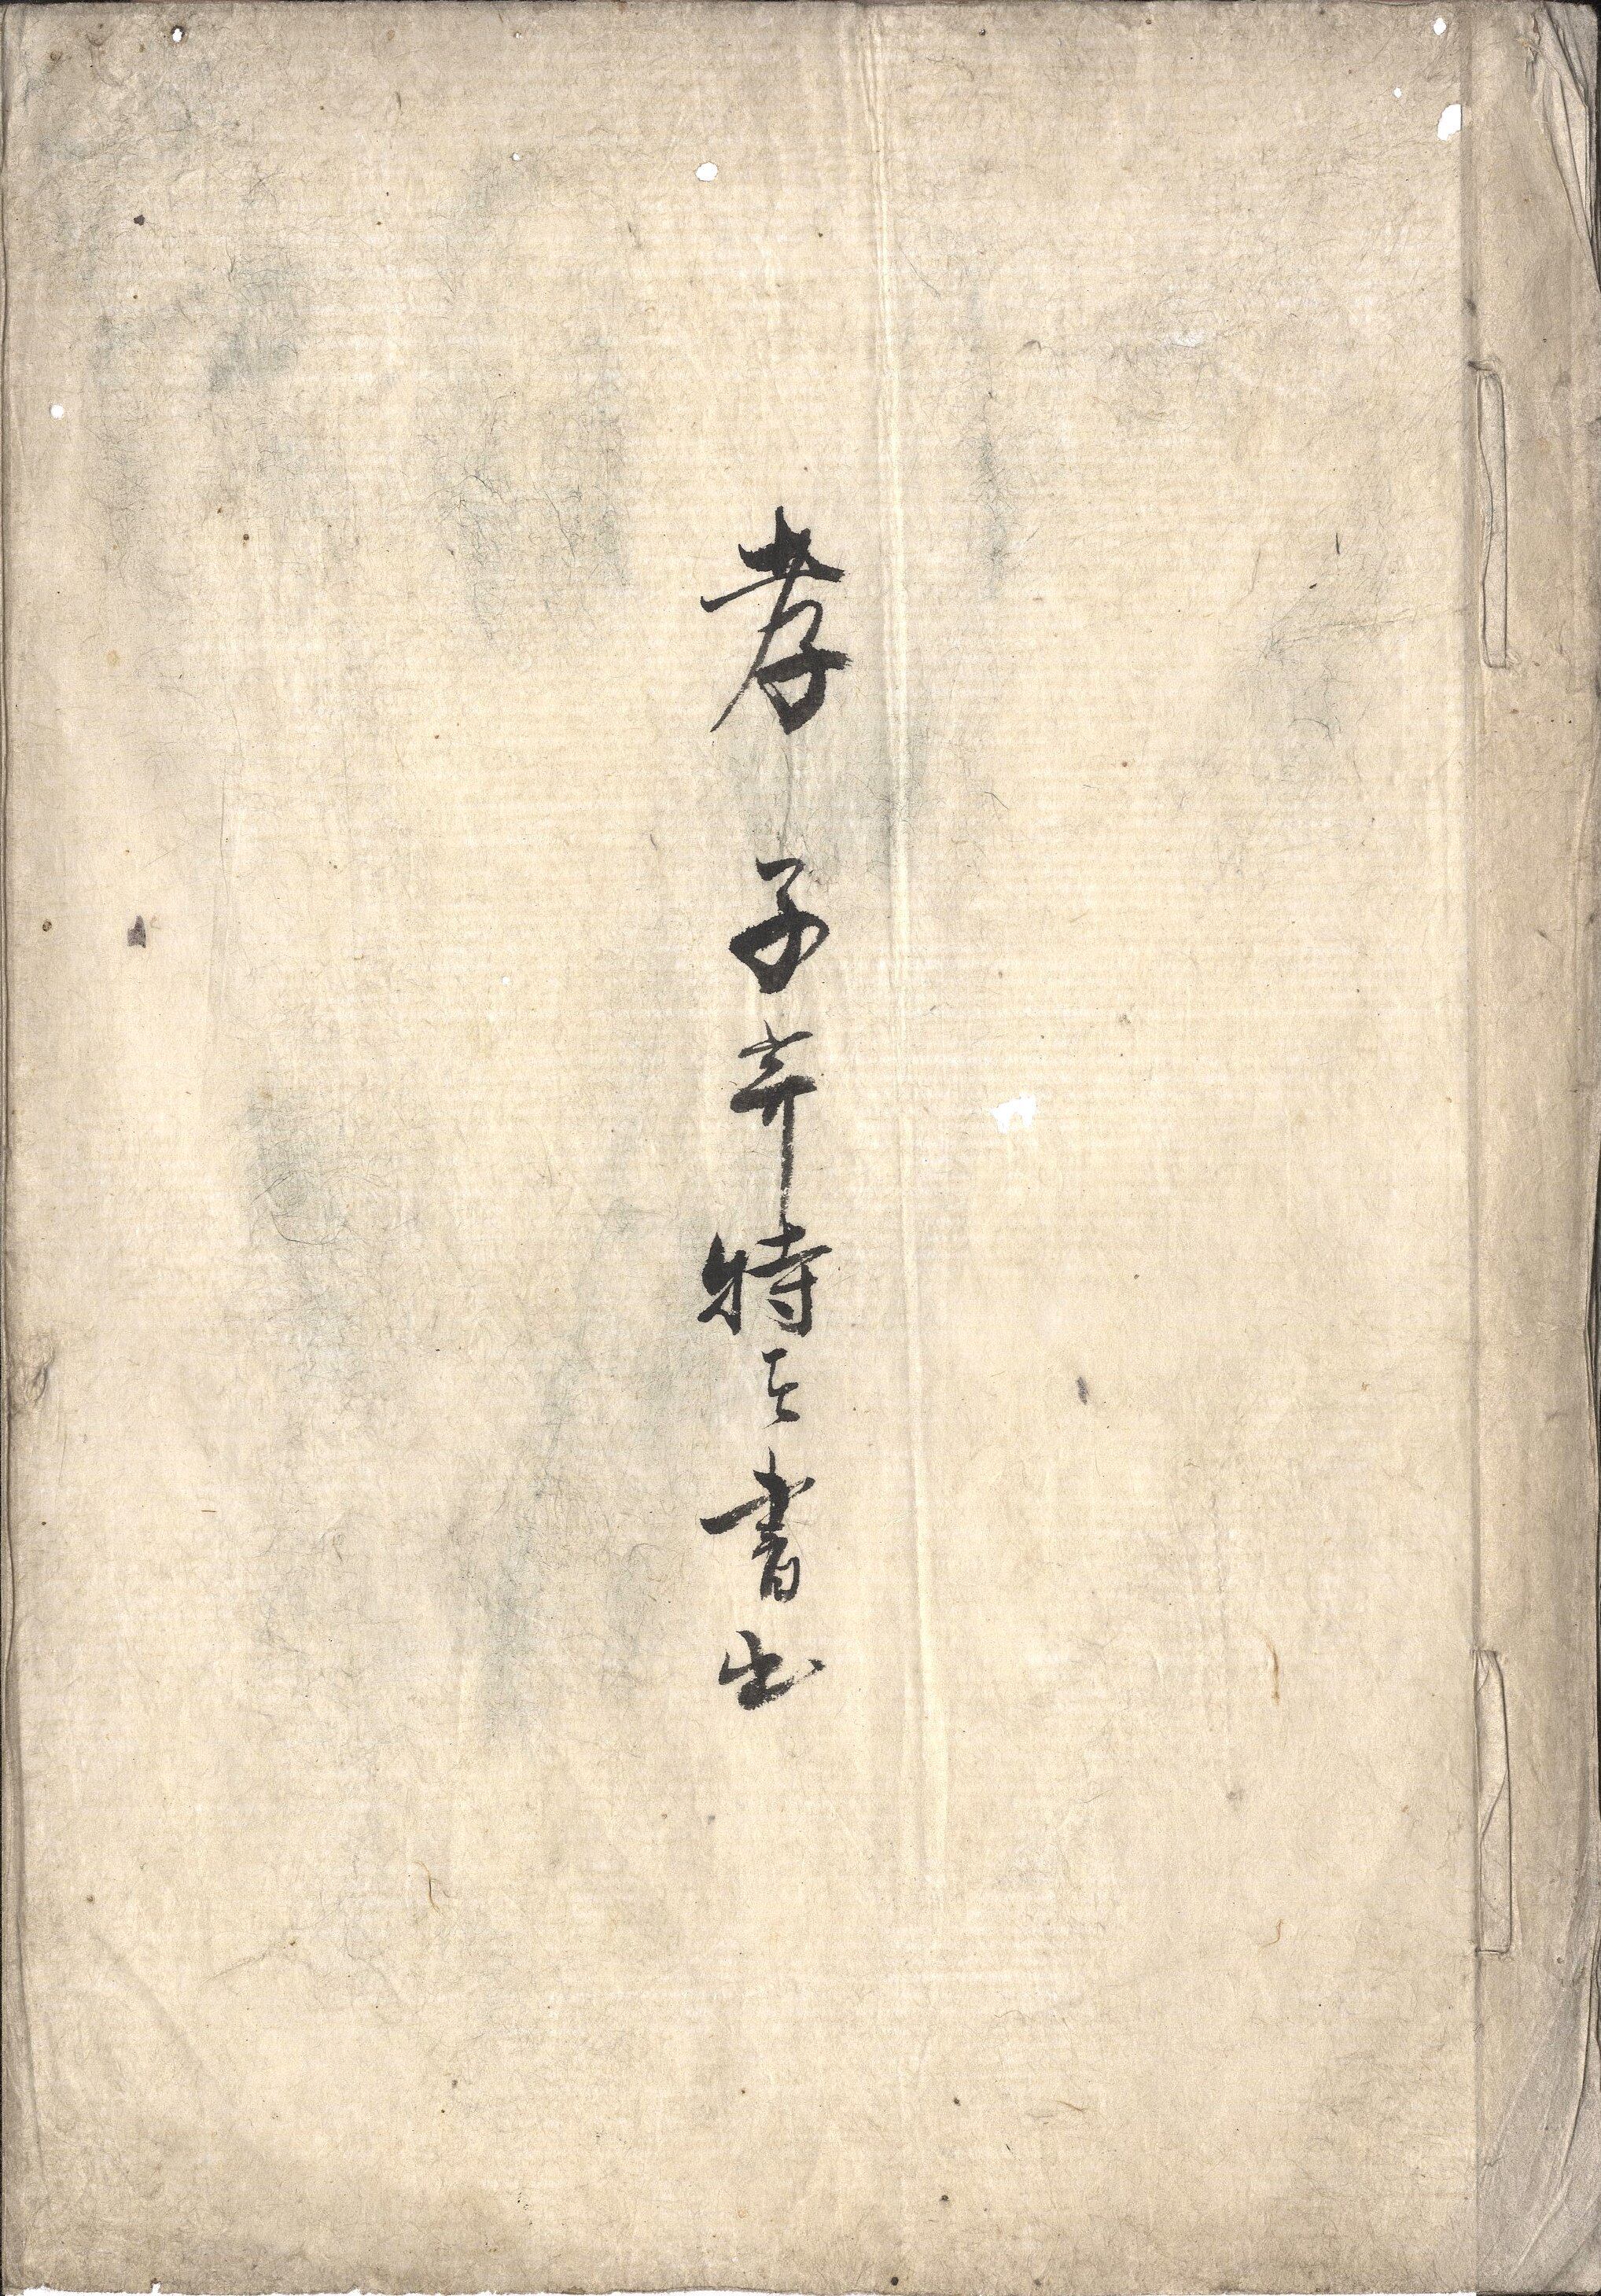 孝子奇特者書出